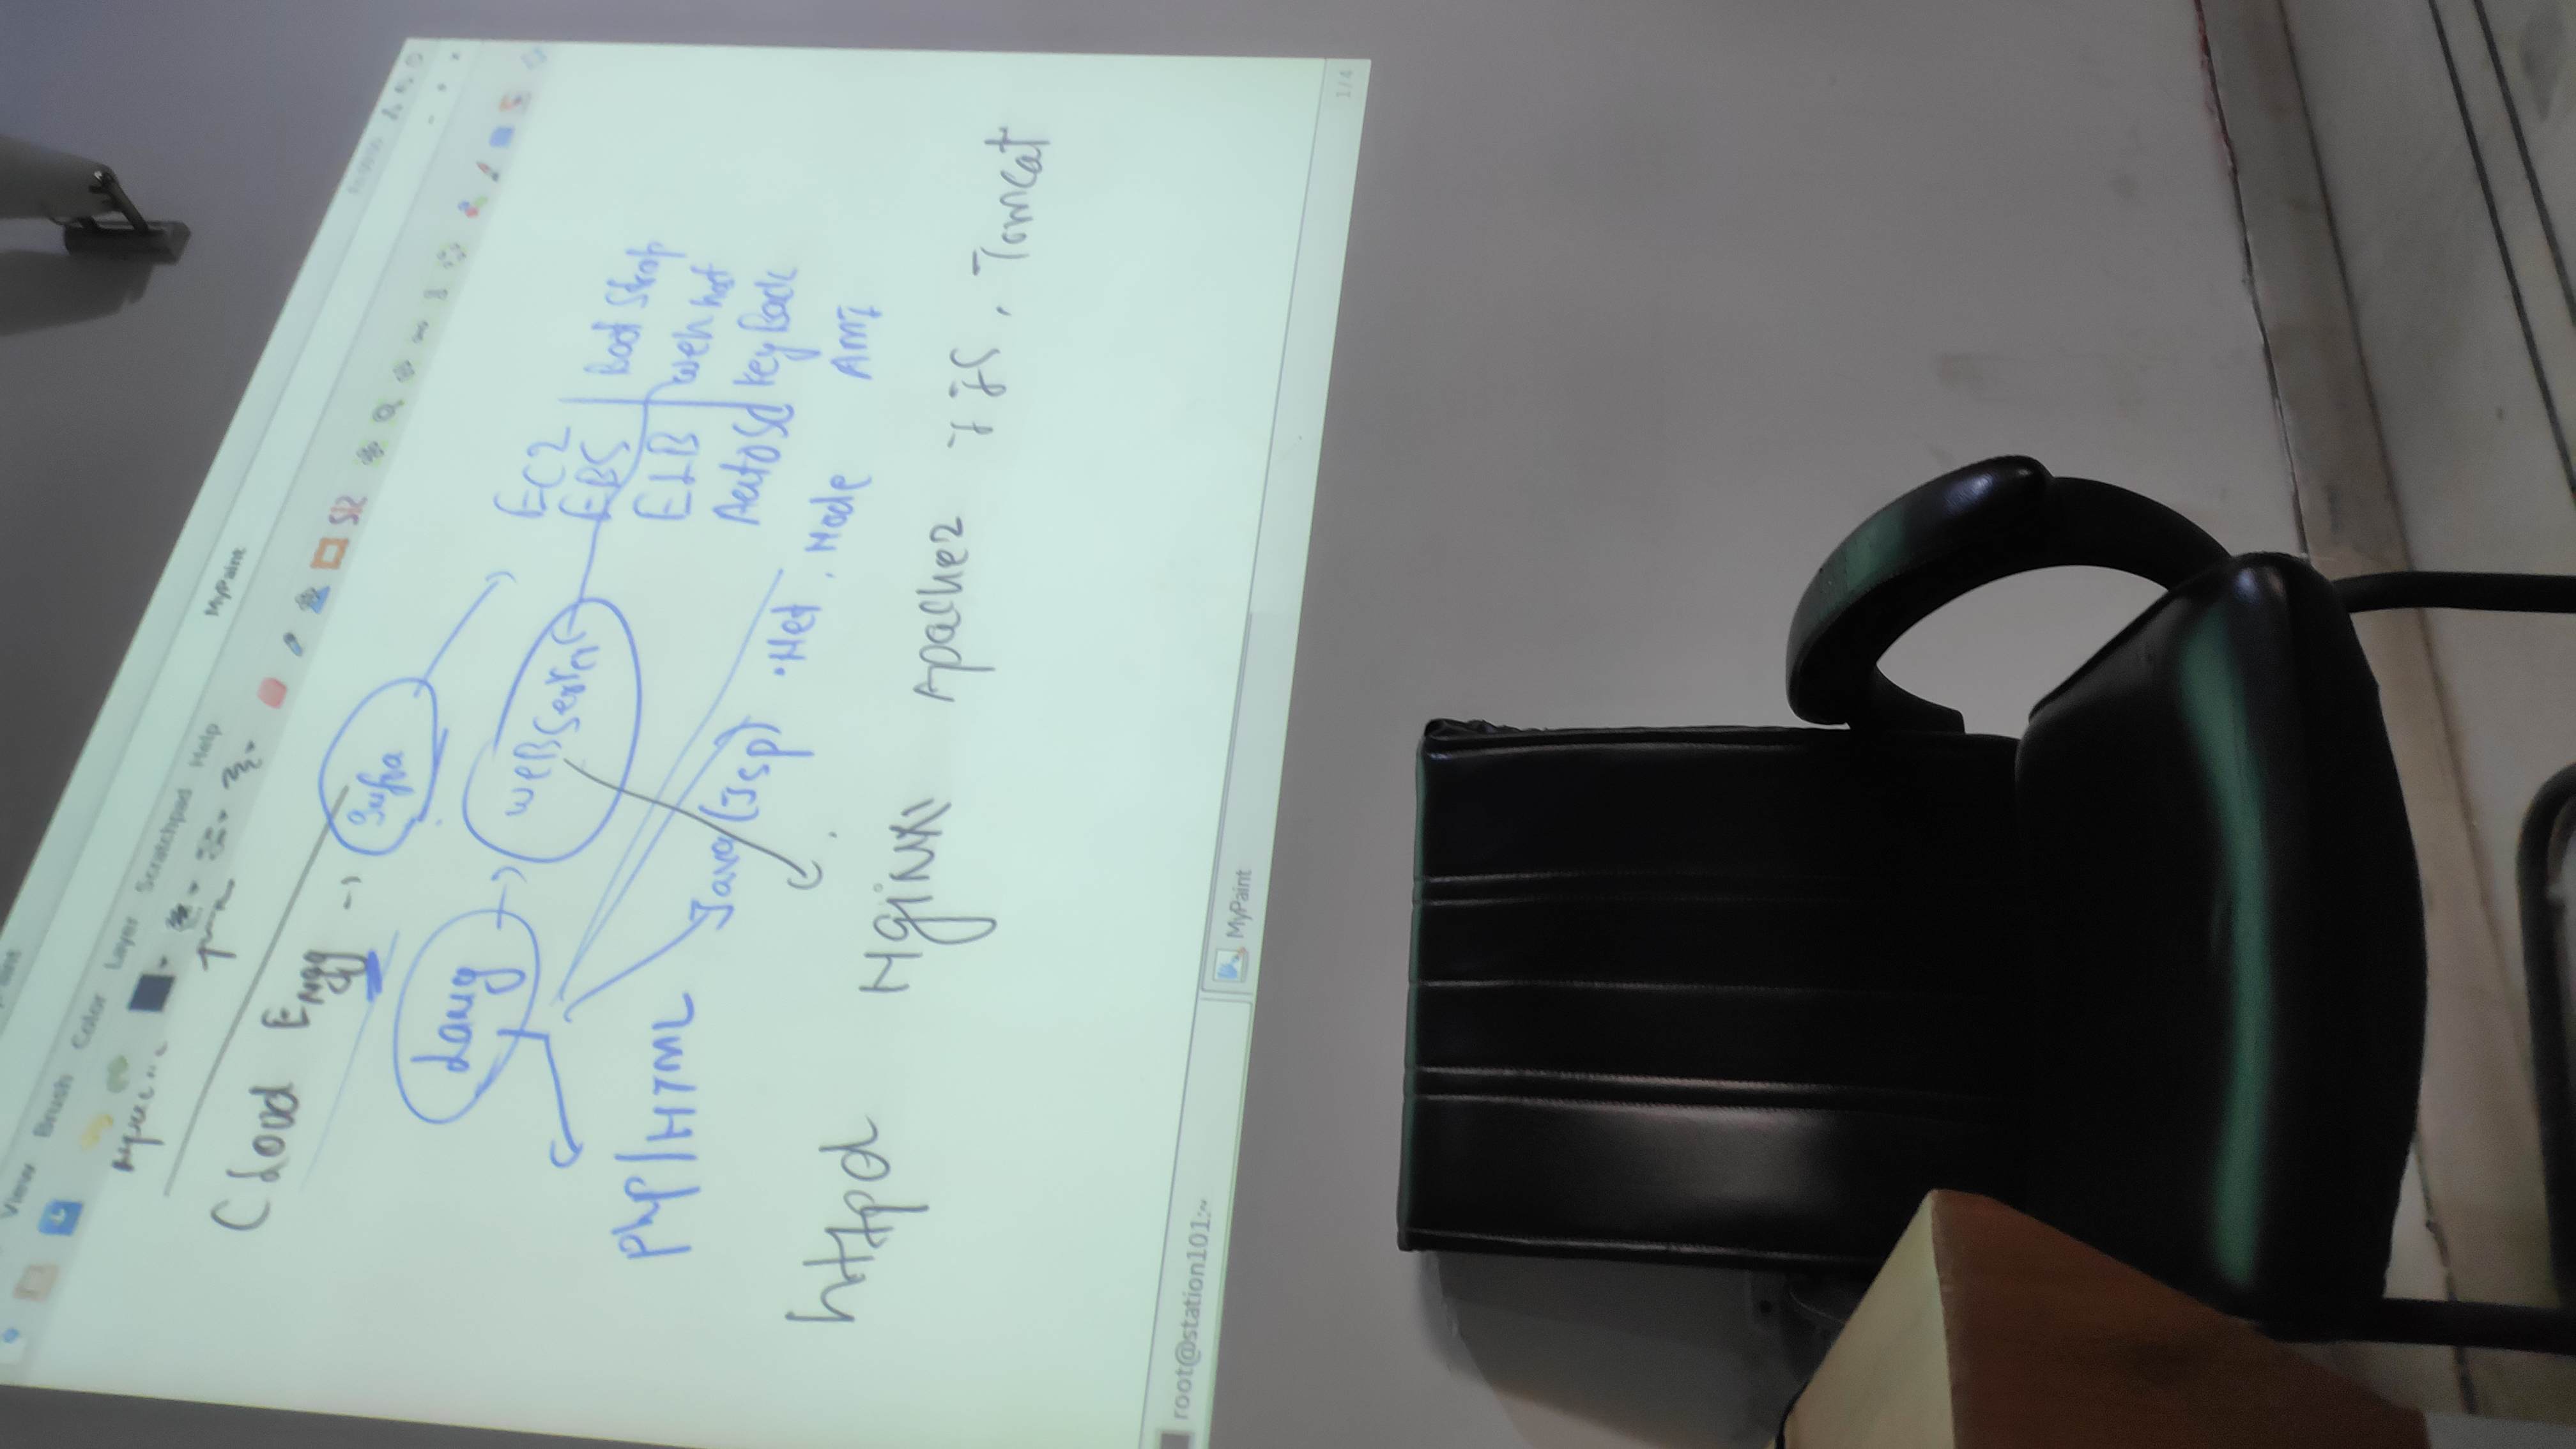 Paint
View Brush Color Layer Scratchpad Help
MyPaint
Cloud Engg → Infra
Lang → WeBServer
EC2
EBS
ELB
AutoSc
Boot Strap
web host
Key Back
AMI
PhP/HTML
Java (Jsp) .Net, Node
httpd Nginx Apache2 IIS, Tomcat
root@station101:~
MyPaint
1/4